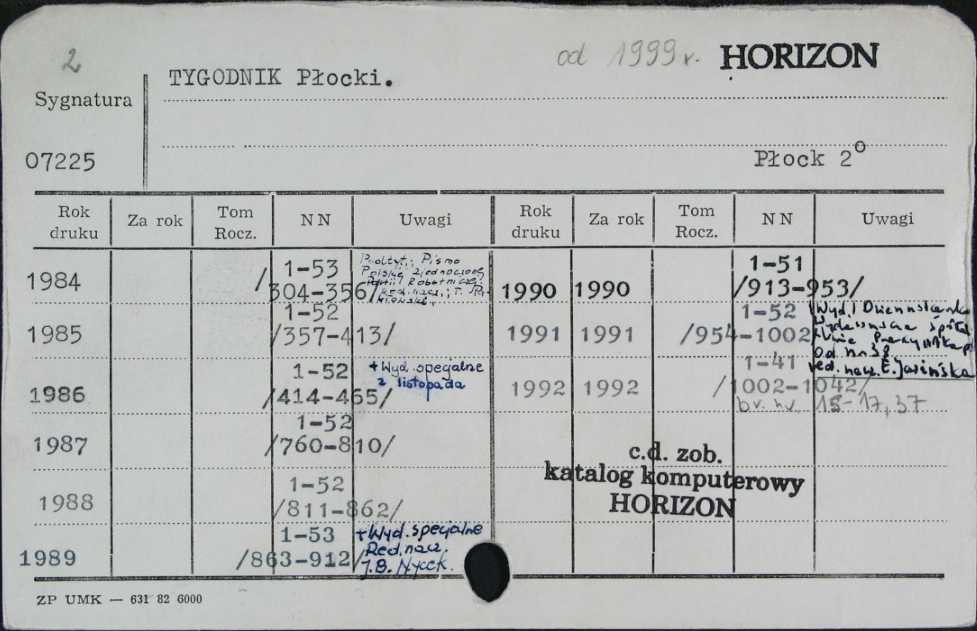 2
od 1999 r. HORIZON
TYGODNIK Płocki.
Sygnatura
07225
Płock 2°
Rok druku Za rok Tom Rocz. NN Uwagi Rok druku Za rok Tom Rocz. NN Uwagi
1984 1-53 /304-356/ Polityt. Pismo
Polskiej Zjednoczonej
Partii Robotniczej
red. nacz.: T.
1985 1-52 /357-413/
1986 1-52 /414-465/ + Wyd. specjalne
2 listopada
1987 1-52 /760-810/
1988 1-52 /811-862/
1989 1-53 /863-912/ + Wyd. specjalne
Red. nacz.
J.B. Nycek.
1990 1990 1-51 /913-953/
1991 1991 1-52 /954-1002/ Wyd.
od nr 38
red. nacz. E. Jasińska
1992 1992 1-41 /1002-1042/
br. nr 15-17, 37
c.d. zob.
katalog komputerowy
HORIZON
ZP UMK — 631 82 6000